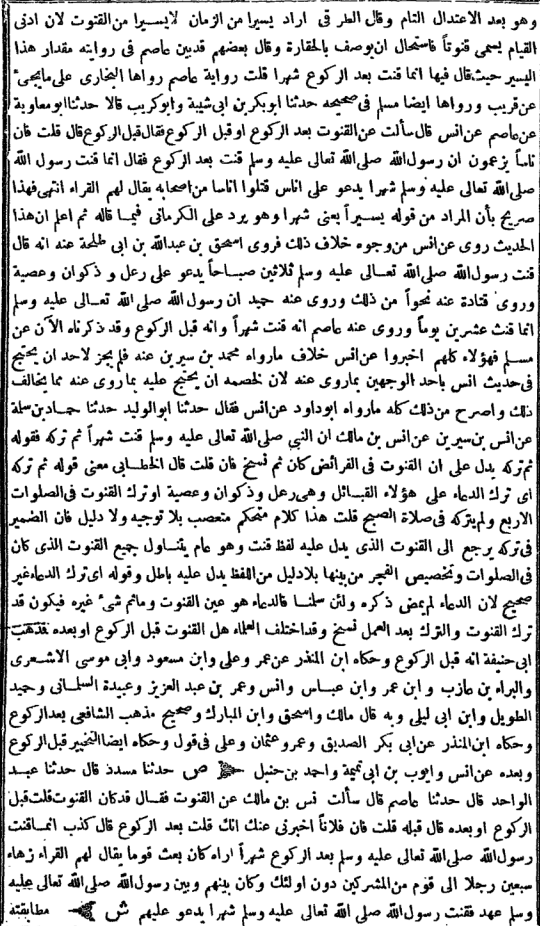 وهو بعد الاعتدال التام وقال الطرقى اراد يسيرا من الزمان لايسيرا من القنوت لان ادنى
القيام يسمى قنوتاً فاستحال ان يوصف بالحقارة وقال بعضهم قدبين عاصم فى روايته مقدار هذا
اليسير حيث قال فيها انما قنت بعد الركوع شهرا قلت رواية عاصم رواها البخارى على مايجىء
عن قريب ورواها ايضا مسلم فى صحيحه حدثنا ابوبكر بن ابى شيبة وابوكريب قالا حدثنا ابومعاوية
عن عاصم عن انس قال سألت عن القنوت بعد الركوع اوقبل الركوع فقال قبل الركوع قال قلت فان
ناساً يزعمون ان رسول الله صلى الله تعالى عليه وسلم قنت بعد الركوع فقال انما قنت رسول الله
صلى الله تعالى عليه وسلم شهرا يدعو على اناس قتلوا اناسا من اصحابه يقال لهم القراء انتهى فهذا
صريح بأن المراد من قوله يسيراً يعنى شهرا وهو يرد على الكرمانى فيما قاله ثم اعلم ان هذا
الحديث روى عن انس من وجوه خلاف ذلك فروى اسحق بن عبدالله بن ابى طلحة عنه انه قال
قنت رسول الله صلى الله تعالى عليه وسلم ثلاثين صباحاً يدعو على رعل و ذكوان وعصية
وروى قتادة عنه نحواً من ذلك وروى عنه حميد ان رسول الله صلى الله تعالى عليه وسلم
انما قنت عشرين يوماً وروى عنه عاصم انه قنت شهراً وانه قبل الركوع وقد ذكرناه الآن عن
مسلم فهؤلاء كلهم اخبروا عن انس خلاف مارواه محمد بن سيرين عنه فلم يجز لاحد ان يحتج
فى حديث انس باحد الوجهين بماروى عنه لان لخصمه ان يحتج عليه بماروى عنه مما يخالف
ذلك واصرح من ذلك كله مارواه ابوداود عن انس فقال حدثنا ابوالوليد حدثنا حماد بن سلمة
عن انس بن سيرين عن انس بن مالك ان النبى صلى الله تعالى عليه وسلم قنت شهراً ثم تركه فقوله
ثم تركه يدل على ان القنوت فى الفرائض كان ثم نسخ فان قلت قال الخطابى معنى قوله ثم تركه
اى ترك الدعاء على هؤلاء القبائل وهى رعل وذكوان وعصية اوترك القنوت فى الصلوات
الاربع ولم يتركه فى صلاة الصبح قلت هذا كلام متحكم متعصب بلا توجيه ولا دليل فان الضمير
فى تركه يرجع الى القنوت الذى يدل عليه لفظ قنت وهو عام يتناول جميع القنوت الذى كان
فى الصلوات وتخصيص الفجر من بينها بلادليل من اللفظ يدل عليه باطل وقوله اى ترك الدعاء غير
صحيح لان الدعاء لم يمض ذكره ولئن سلمنا فالدعاء هو عين القنوت وماثم شىء غيره فيكون قد
ترك القنوت والترك بعد العمل نسخ وقد اختلف العلماء هل القنوت قبل الركوع اوبعده فذهب
ابى حنيفة انه قبل الركوع وحكاه ابن المنذر عن عمر وعلى وابن مسعود وابى موسى الاشعرى
والبراء بن عازب و ابن عمر وابن عباس وانس وعمر بن عبد العزيز وعبيدة السلمانى وحميد
الطويل وابن ابى ليلى وبه قال مالك واسحق وابن المبارك وصحيح مذهب الشافعى بعدالركوع
وحكاه ابن المنذر عن ابى بكر الصديق وعمر وعثمان وعلى فى قول وحكاه ايضا التخيير قبل الركوع
وبعده عن انس وايوب بن ابى تميمة واحمد بن حنبل ص حدثنا مسدد قال حدثنا عبد
الواحد قال حدثنا عاصم قال سألت نس بن مالك عن القنوت فقال قدكان القنوت قلت قبل
الركوع اوبعده قال قبله قلت فان فلاناً اخبرنى عنك انك قلت بعد الركوع قال كذب انما قنت
رسول الله صلى الله تعالى عليه وسلم بعد الركوع شهراً اراه كان بعث قوما يقال لهم القراء زهاء
سبعين رجلا الى قوم من المشركين دون اولئك وكان بينهم وبين رسول الله صلى الله تعالى عليه
وسلم عهد فقنت رسول الله صلى الله تعالى عليه وسلم شهرا يدعو عليهم ش مطابقته